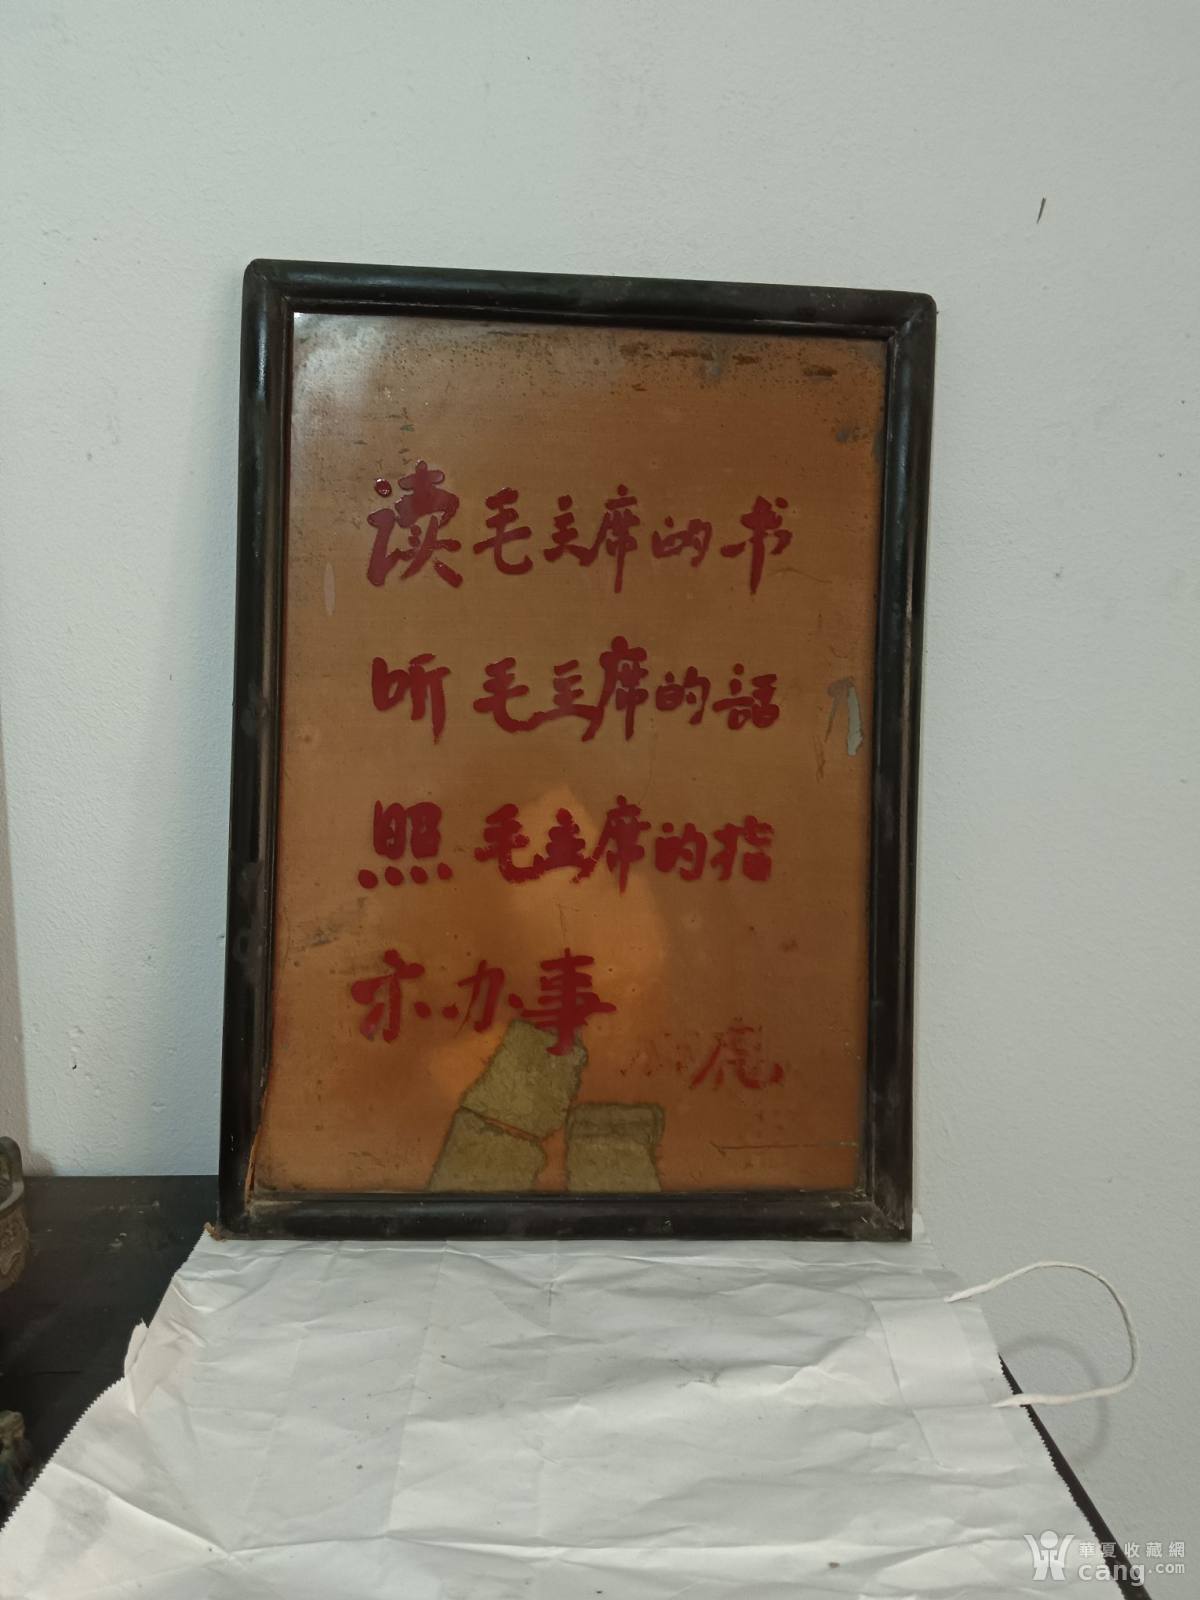 读毛主席的书
听毛主席的話
照毛主席的指
示办事
彪
華夏收藏網
cang.com